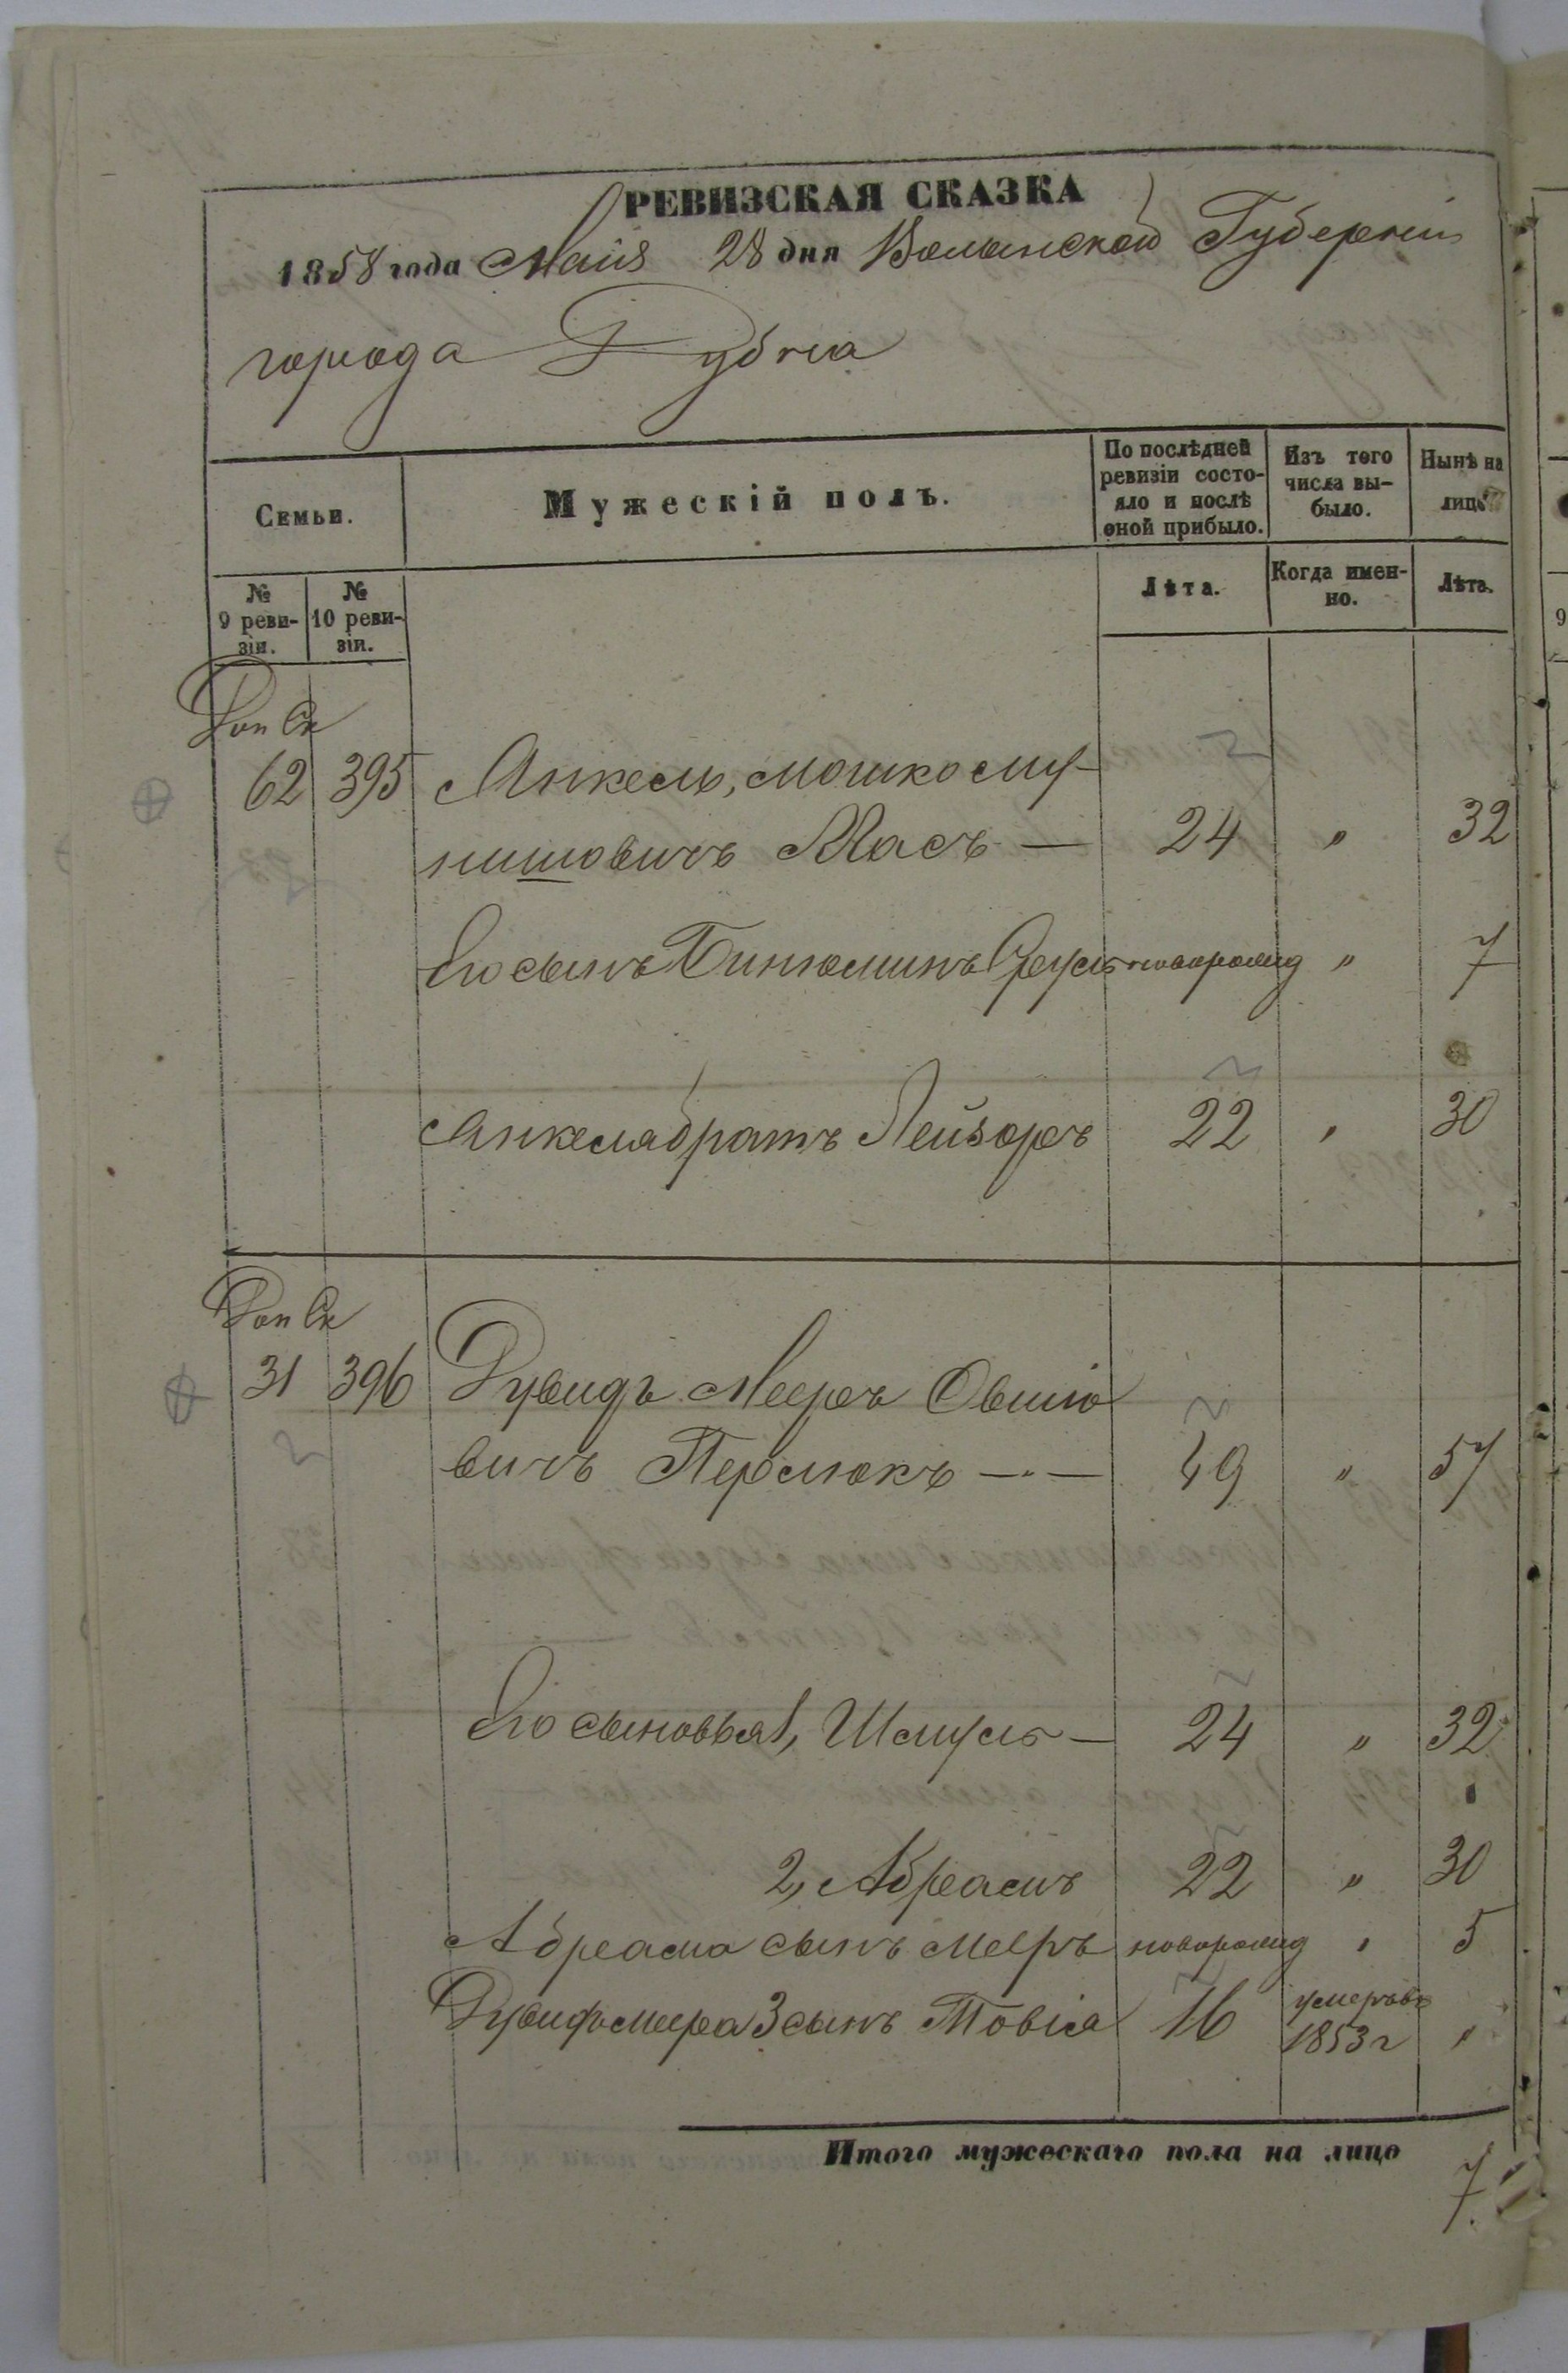 РЕВИЗСКАЯ СКАЗКА
1858 года Маія 28 дня Волынской Губерніи
города Дубна
Семьи.
Мужескій полъ.
По послѣдней ревизіи состояло и послѣ оной прибыло.
Изъ того числа выбыло.
Нынѣ на лицо
№ 9 ревизіи.
№ 10 ревизіи.
Лѣта.
Когда именно.
Лѣта.
Доп Ск
62 395 Анкель, Мошко
24 " 32
Его сынъ Бинюминъ Сруль новорожд " 7
Анкеля братъ Лейзоръ 22 " 30
Доп Ск
31 396 Дувидъ Мееръ Овшіо
вичъ Перлюкъ — 49 " 57
Его сыновья 1, Шмуль — 24 " 32
2, Абрамъ 22 " 30
Абрама сынъ Мееръ новорожд " 5
Дувидъ Меера 3 сынъ Товія 16 умеръ въ 1853 г "
Итого мужескаго пола на лицо 7